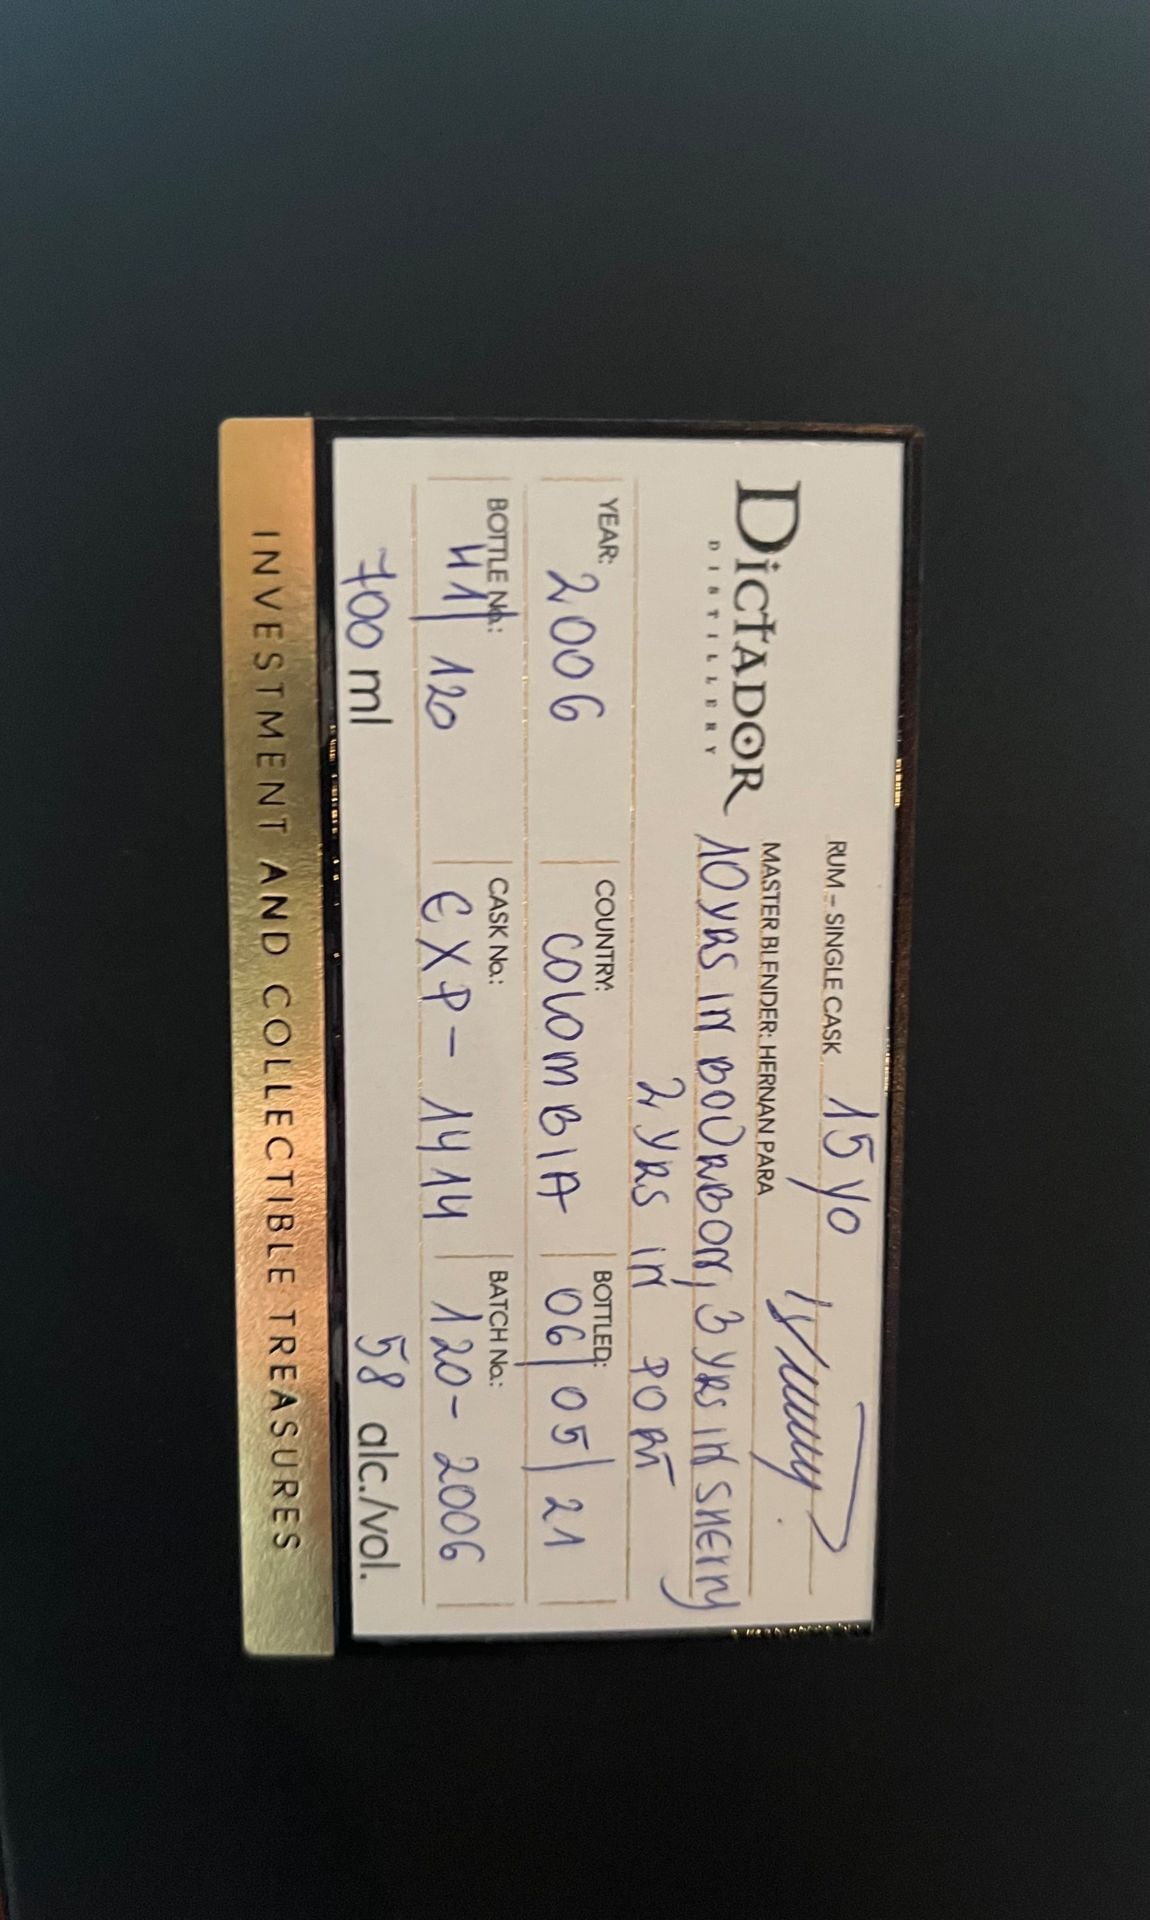 RUM – SINGLE CASK 15 YO
DICTADOR
DISTILLERY
MASTER BLENDER: HERNAN PARA
10 YRS IN BOURBON, 3 YRS IN SHERRY
2 YRS IN PORT
YEAR: 2006 COUNTRY: COLOMBIA BOTTLED: 06/05/21
BOTTLE No.: 41/120 CASK No.: EXP-1414 BATCH No.: 120-2006
700 ml 58 alc./vol.
INVESTMENT AND COLLECTIBLE TREASURES